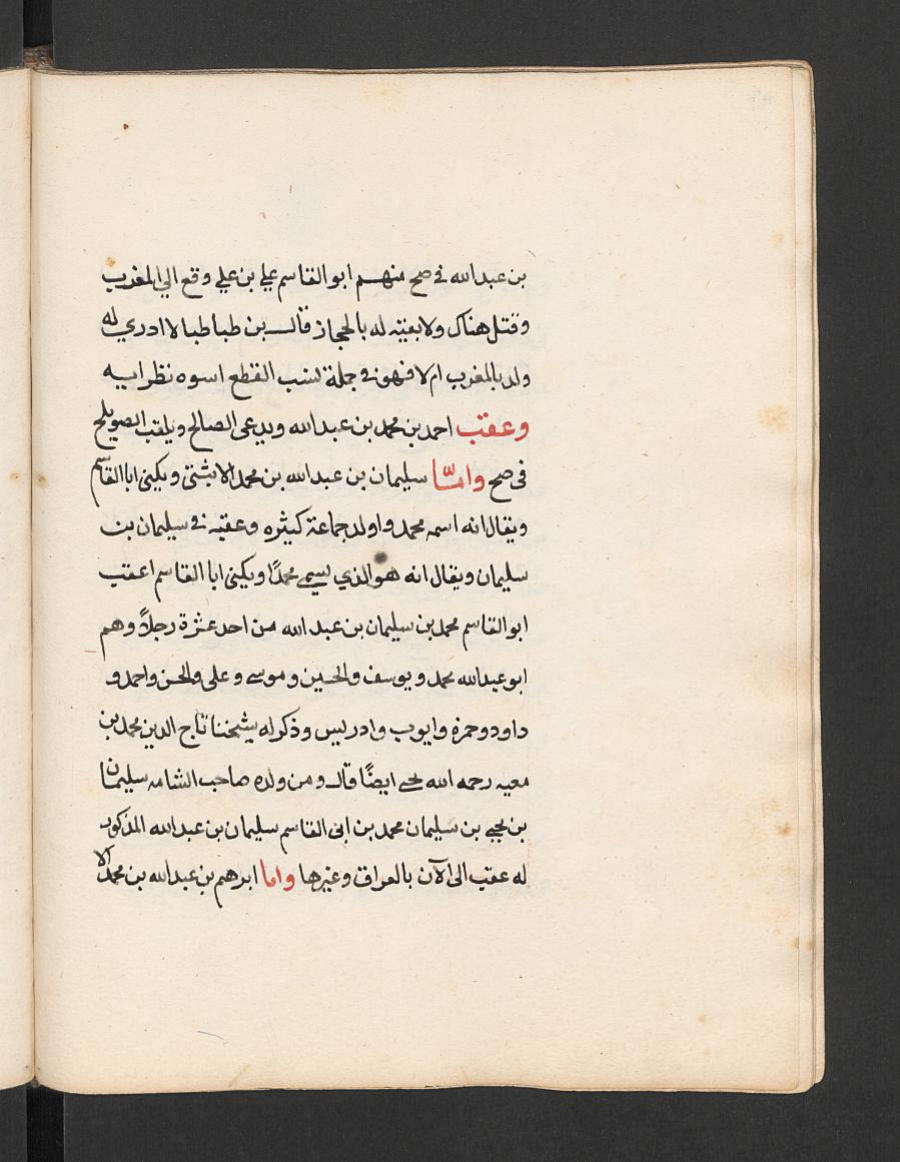 بن عبدالله في صح منهم ابو القاسم علي بن علي وقع الي المغرب
وقتل هناك ولا بقيته له بالحجاز قال بن طباطبا لا ادري له
ولد بالمغرب ام لا فهو في جملة لنسب القطع اسوه نظرابيه
وعقب احمد بن محمد بن عبدالله ويدعى الصالح ويلقب الصويلح
في صح وامّا سليمان بن عبدالله بن محمد الابثتى ويكنى ابا القاسم
ويقال انه اسمه محمد واولد جماعة كثيره وعقبه في سليمان بن
سليمان ويقال انه هو الذي يسمي محمدًا ويكنى ابا القاسم اعقب
ابو القاسم محمد بن سليمان بن عبدالله من احد عشرة رجلاً وهم
ابو عبدالله محمد ويوسف والحسين وموسي وعلى والحسن واحمد و
داود وحمزه وايوب وادريس وذكر له يشخنا تاج الدين محمد بن
معيه رحمه الله يحيي ايضًا قال ومن ولده صاحب الشامه سليمان
بن يحيي بن سليمان محمد بن ابى القاسم سليمان بن عبدالله المذكور
له عقب الى الآن بالعراق وغيرها واما ابرهم بن عبدالله بن محمد الا